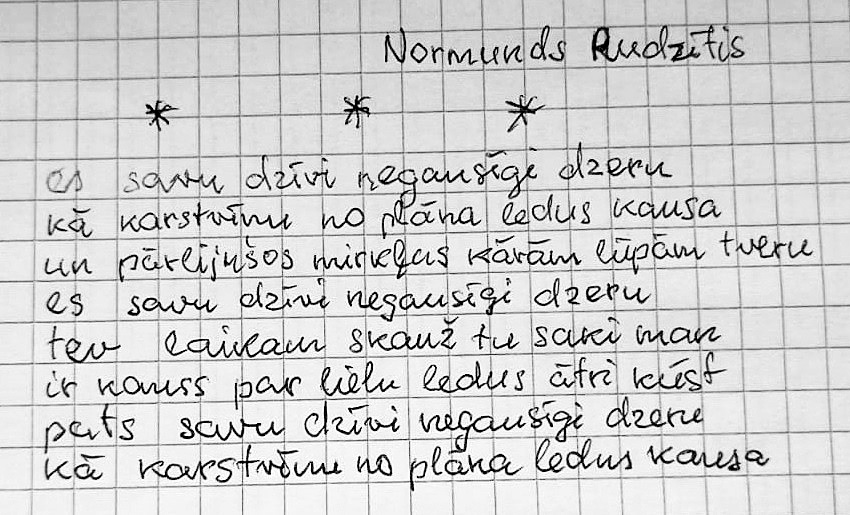 Normunds Rudzītis
* * *
es savu dzīvi negausīgi dzeru
kā karstvīnu no plāna ledus kausa
un pārlijušos mirkļus kārām lūpām tveru
es savu dzīvi negausīgi dzeru
tev laikam skauž tu saki man
ir kauss par lielu ledus ātri kūst
pats savu dzīvi negausīgi dzeru
kā karstvīnu no plāna ledus kausa